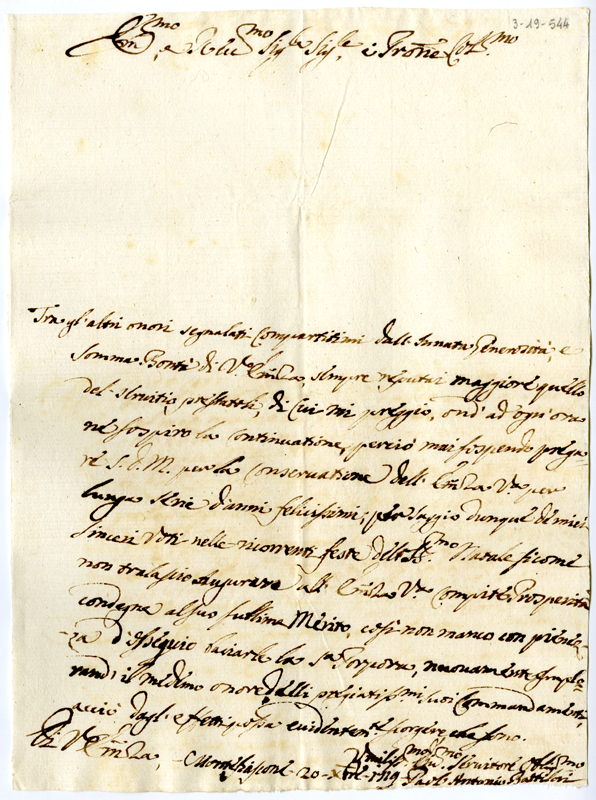 3-19-544
Em.mo, e R.mo Sig.re Sig.re, e Prone Col.mo
Tra gl'altri onori segnalati Compartitimi dall'Innata Generosità, e
somma Bontà di V.a Em.za, sempre reputai maggiore quello
del servitio prestatole, di Cui mi preggio, ond'ad ogn'ora
ne sospiro la continuatione, perciò mai sospendo prega-
re S.D.M. per la Conservatione dell'Em.za V.a per
lunga serie d'anni felicissimi; per saggio dunque de miei
sinceri voti nelle ricorrenti feste del SS.mo Natale sicome
non tralascio Augurare all'Em.za V.a Compite Prosperità
condegne al suo sublime Merito, così non manco con pienez-
za d'ossequio baciarle la S.a Porpora, nuovamente Implo-
rando il medemo onore delli pregiatissimi suoi Commandamenti,
acciò dagl'effetti possa evidentem.te scorgere che sono.
Di V. Em.za,
Montefiascone 20 Xbre 1719
Umiliss.mo Servitore Obl.mo
Paolo Antonio Battilori